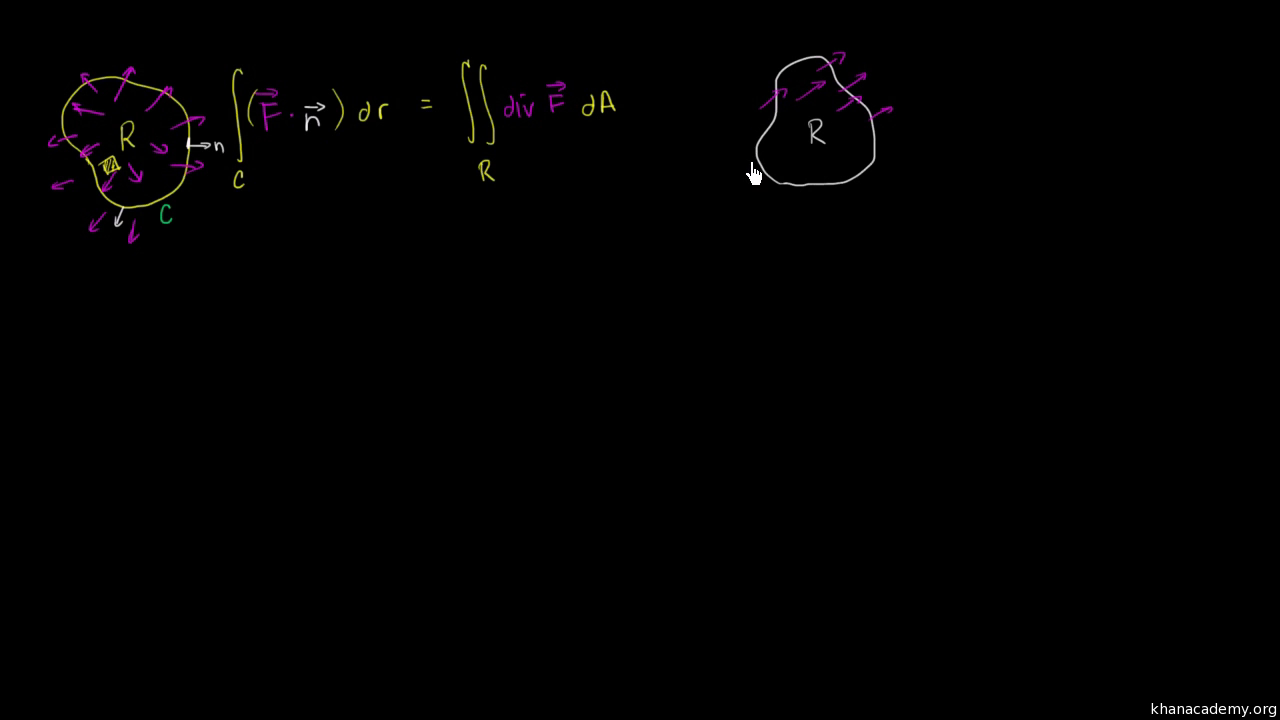 R
n
C
∫
C
(F⃗ · n⃗) dr = ∬ div F⃗ dA
R
R
khanacademy.org